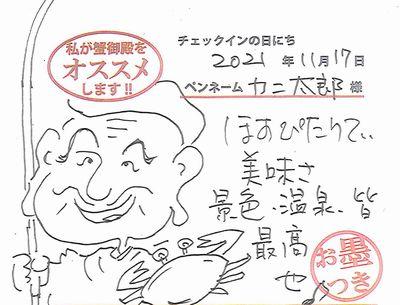 私が蟹御殿を
オススメ
します!!
チェックインの日にち
2021年11月17日
ペンネーム カニ太郎 様
ほすぴたりてぃ
美味さ
景色、温泉、皆
最高
也
お墨
つき